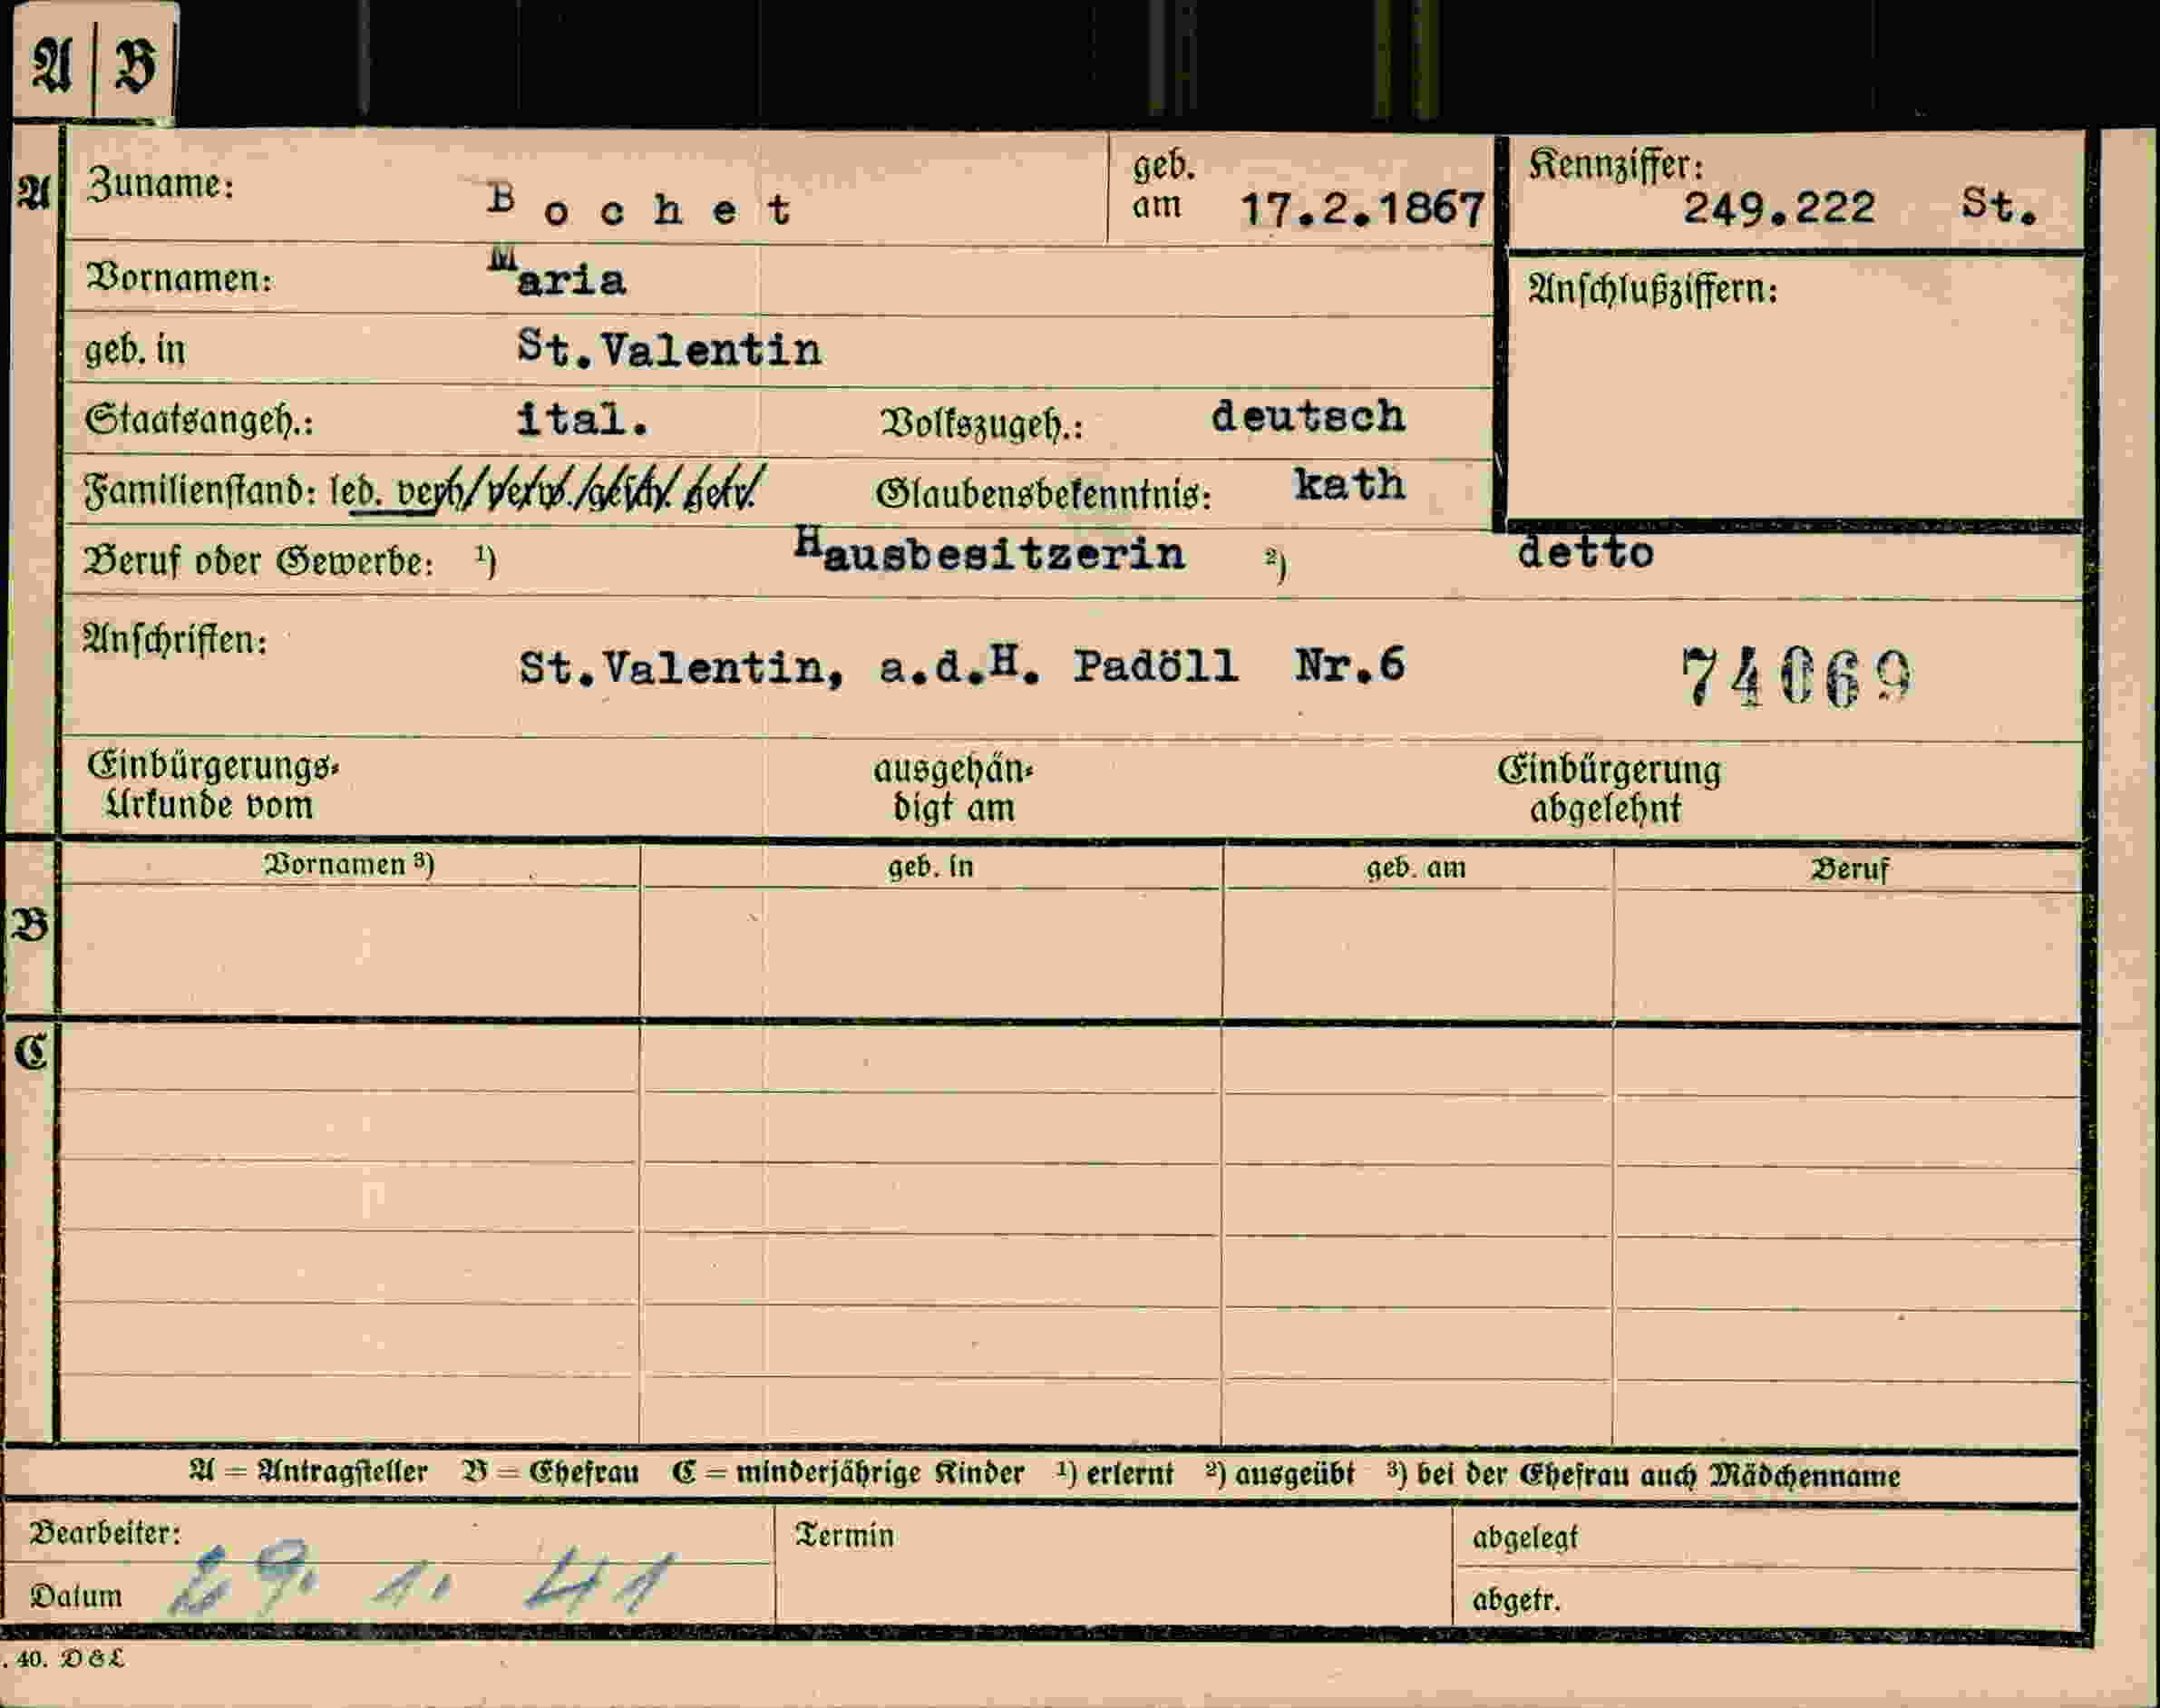 A B
A
Zuname: Bochet geb. am 17.2.1867 Kennziffer: 249.222 St.
Vornamen: Maria Anschlußziffern:
geb. in St.Valentin
Staatsangeh.: ital. Volkszugeh.: deutsch
Familienstand: led. verh. verw. gesch. getr. Glaubensbekenntnis: kath
Beruf oder Gewerbe: ¹) Hausbesitzerin ²) detto
Anschriften: St.Valentin, a.d.H. Padöll Nr.6 74069
Einbürgerungs- ausgehän- Einbürgerung
Urkunde vom digt am abgelehnt
Vornamen ³) geb. in geb. am Beruf
B
C
A = Antragsteller B = Ehefrau C = minderjährige Kinder ¹) erlernt ²) ausgeübt ³) bei der Ehefrau auch Mädchenname
Bearbeiter: Termin abgelegt
Datum 29. 1. 41 abgetr.
. 40. D & L